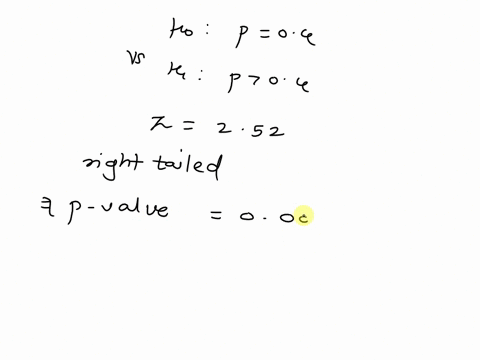 H₀ : p = 0.4
vs
H₁ : p > 0.4
Z = 2.52
right tailed
∃ p-value = 0.00